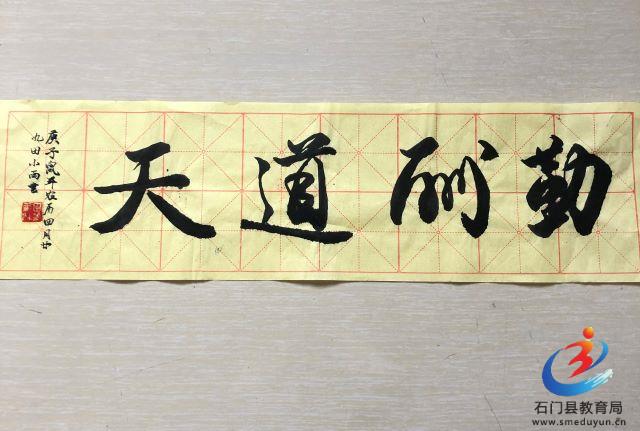 天道酬勤
庚子鼠年农历四月廿
九田小雨书
石门县教育局
www.smeduyun.cn